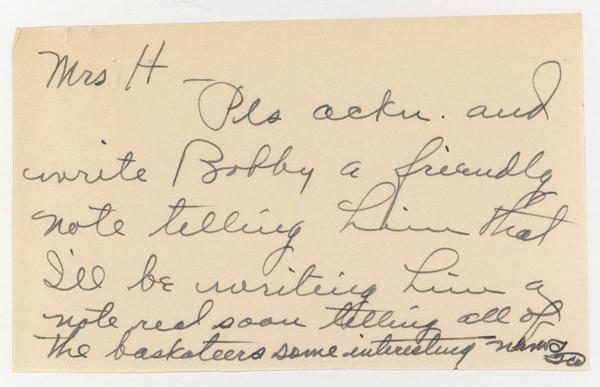 Mrs H —
Pls ackn. and
write Bobby a friendly
note telling him that
I'll be writing him a
note real soon telling all of
the basketeers some interesting news